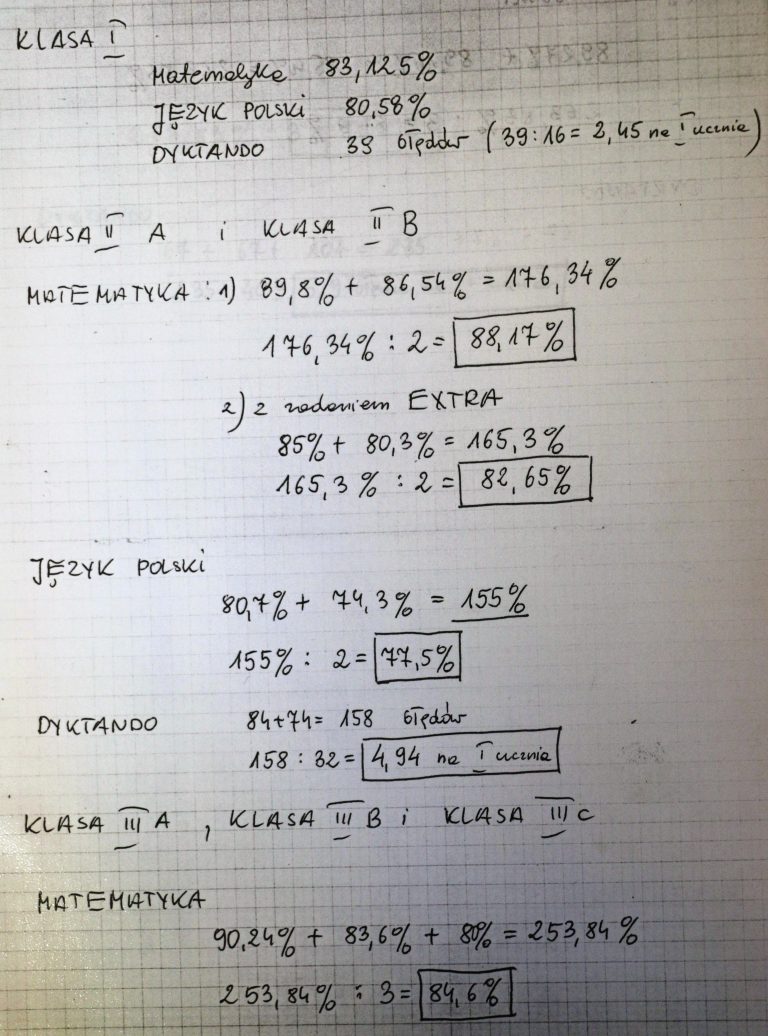 KLASA I
Matematyka 83,125%
JĘZYK POLSKI 80,58%
DYKTANDO 39 błędów (39:16 = 2,45 na I ucznia)
KLASA II A i KLASA II B
MATEMATYKA : 1) 89,8% + 86,54% = 176,34%
176,34% : 2 = 88,17%
2) z zadaniem EXTRA
85% + 80,3% = 165,3%
165,3% : 2 = 82,65%
JĘZYK POLSKI
80,7% + 74,3% = 155%
155% : 2 = 77,5%
DYKTANDO 84+74= 158 błędów
158 : 32 = 4,94 na I ucznia
KLASA III A , KLASA III B i KLASA III C
MATEMATYKA
90,24% + 83,6% + 80% = 253,84%
253,84% : 3 = 84,6%